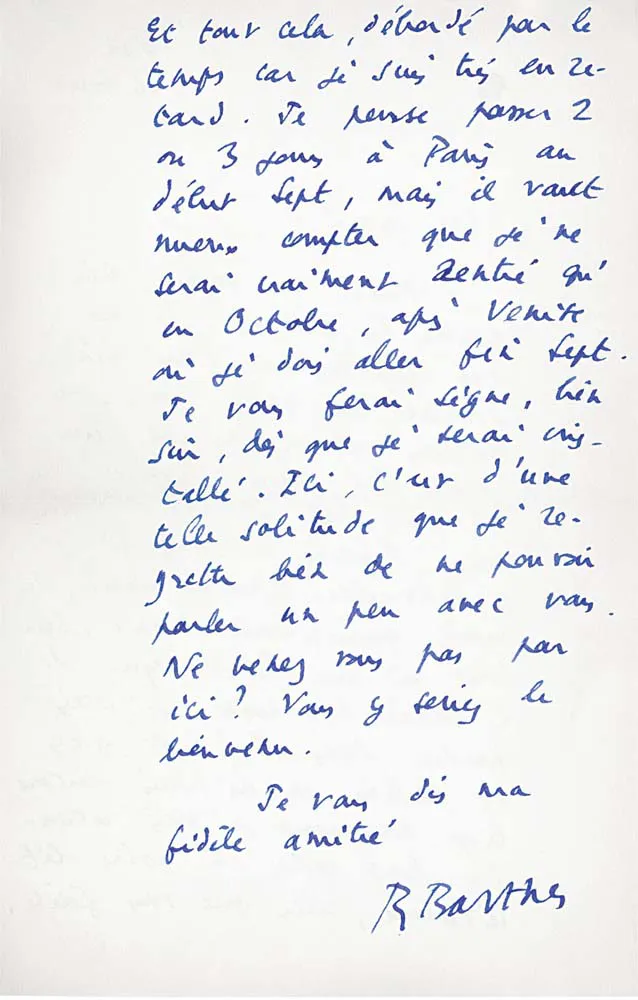 Et tout cela, débordé par le
temps car je suis très en re-
tard. Je pense passer 2
ou 3 jours à Paris au
début Sept, mais il vaut
mieux compter que je ne
serai vraiment rentré qu'
en Octobre, après Venise
où je dois aller fin Sept.
Je vous ferai signe, bien
sûr, dès que je serai ins-
tallé. Ici, c'est d'une
telle solitude que je re-
grette bien de ne pouvoir
parler un peu avec vous.
Ne venez vous pas par
ici? Vous y seriez le
bienvenu.
Je vous dis ma
fidèle amitié
R Barthes